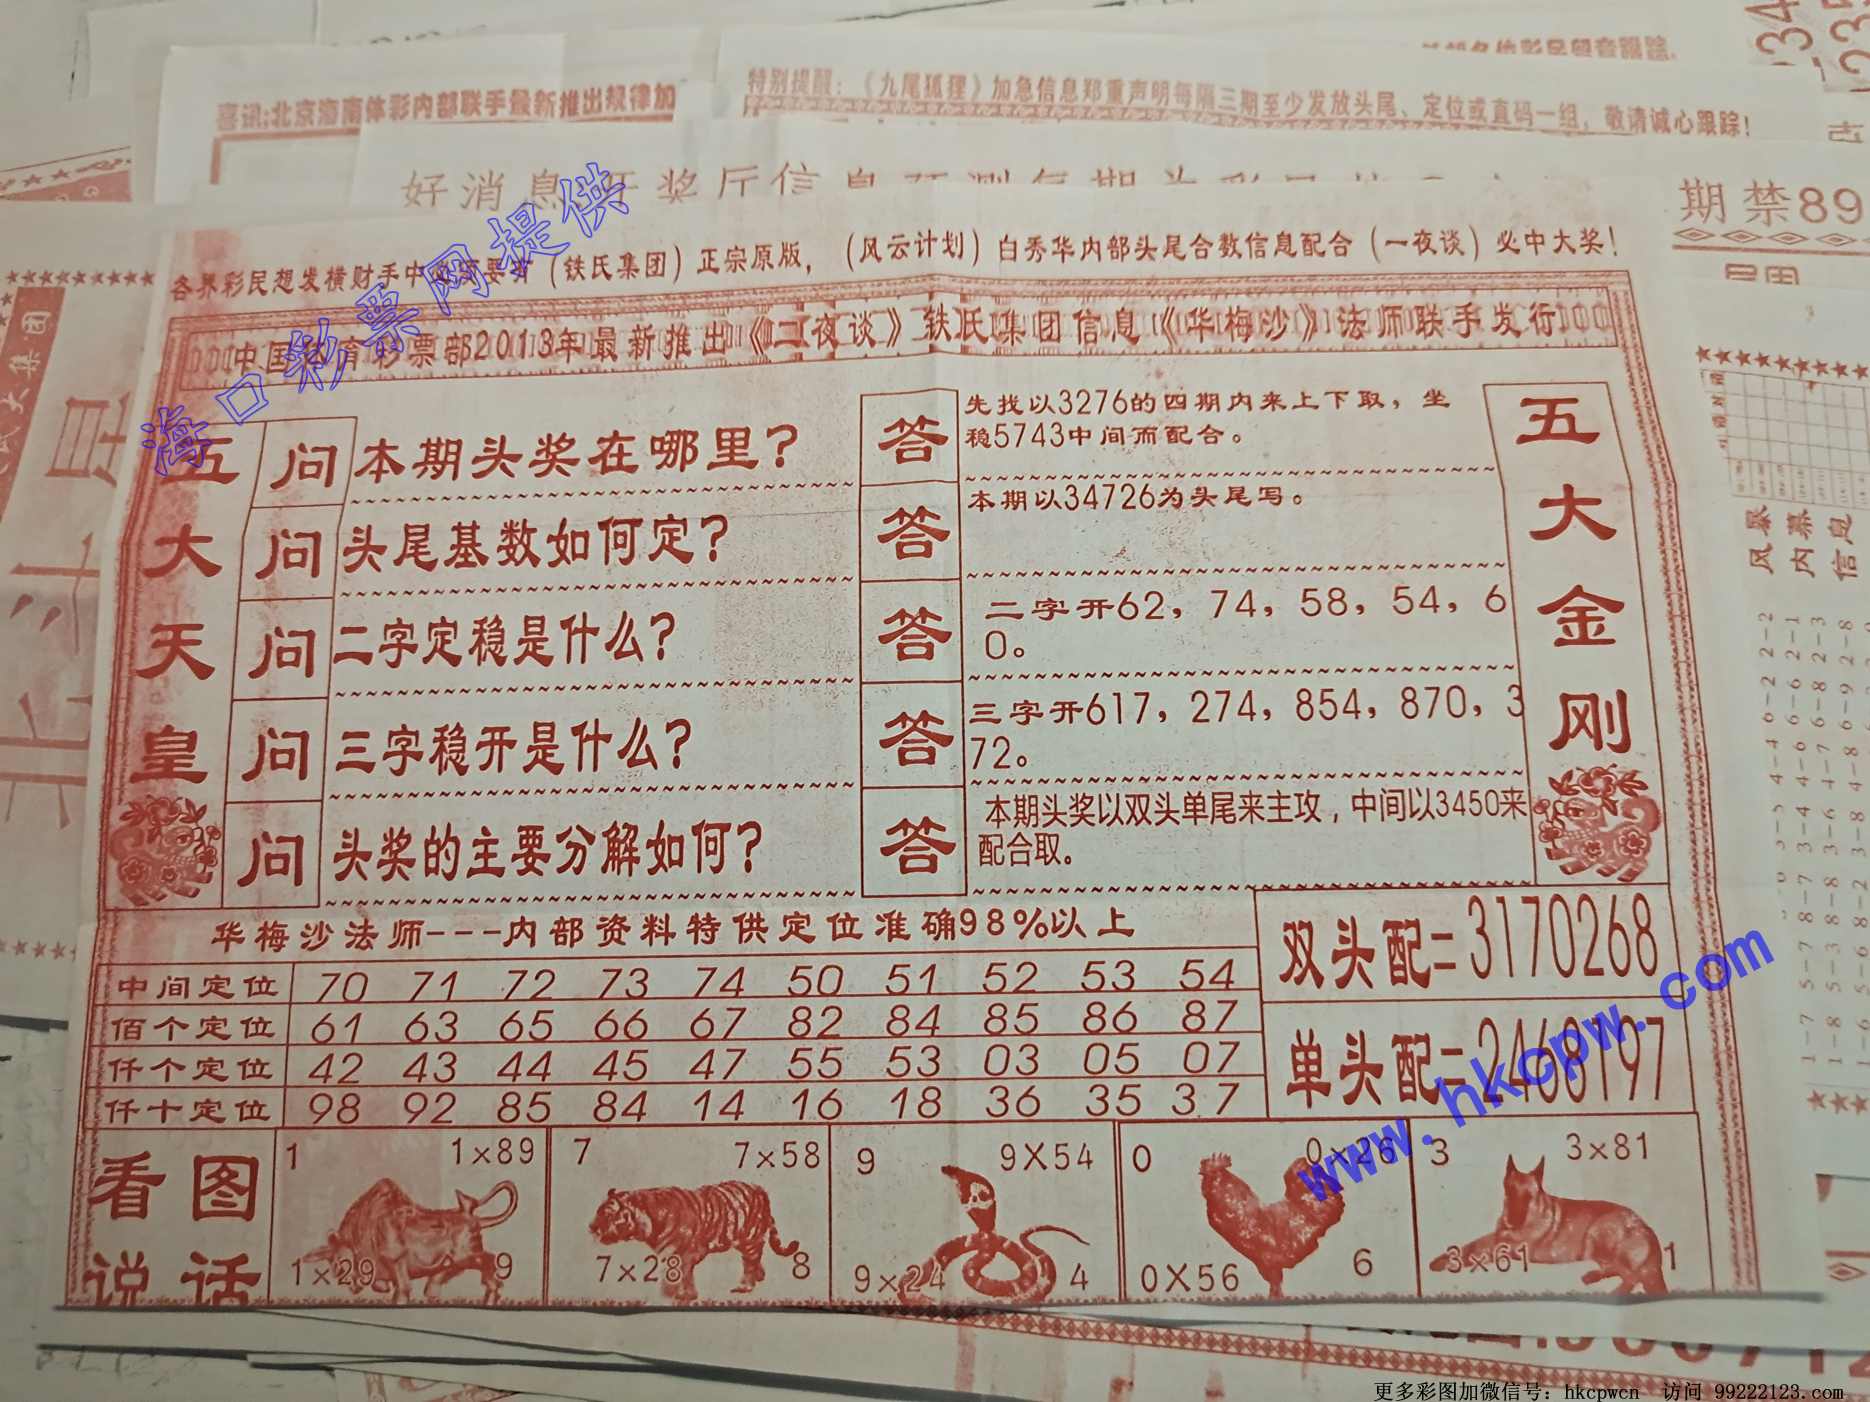 喜讯:北京海南体彩内部联手最新推出规律加
特别提醒：《九尾狐狸》加急信息郑重声明每隔三期至少发放头尾、定位或直码一组，敬请诚心跟踪！
好消息
期禁89
海口彩票网提供
各界彩民想发横财手中 (铁氏集团) 正宗原版， (风云计划) 白秀华内部头尾合数信息配合 (一夜谈) 必中大奖！
中国体育彩票部2013年最新推出《二夜谈》铁氏集团信息《华梅沙》法师联手发行
五大天皇
问 本期头奖在哪里？
答 先找以3276的四期内来上下取，坐
稳5743中间而配合。
问 头尾基数如何定？
答 本期以34726为头尾写。
问 二字定稳是什么？
答 二字开62，74，58，54，6
0。
问 三字稳开是什么？
答 三字开617，274，854，870，3
72。
问 头奖的主要分解如何？
答 本期头奖以双头单尾来主攻，中间以3450来
配合取。
五大金刚
华梅沙法师---内部资料特供定位准确98%以上
中间定位 70 71 72 73 74 50 51 52 53 54
佰个定位 61 63 65 66 67 82 84 85 86 87
仟个定位 42 43 44 45 47 55 53 03 05 07
仟十定位 98 92 85 84 14 16 18 36 35 37
双头配二3170268
单头配二2468197
www.hkcpw.com
看图
说话
1 1×89
1×29 9
7 7×58
7×28 8
9 9X54
9×24 4
0 0×26
0X56 6
3 3×81
3×61 1
风暴
内幕
信息
更多彩图加微信号：hkcpwcn 访问 99222123.com